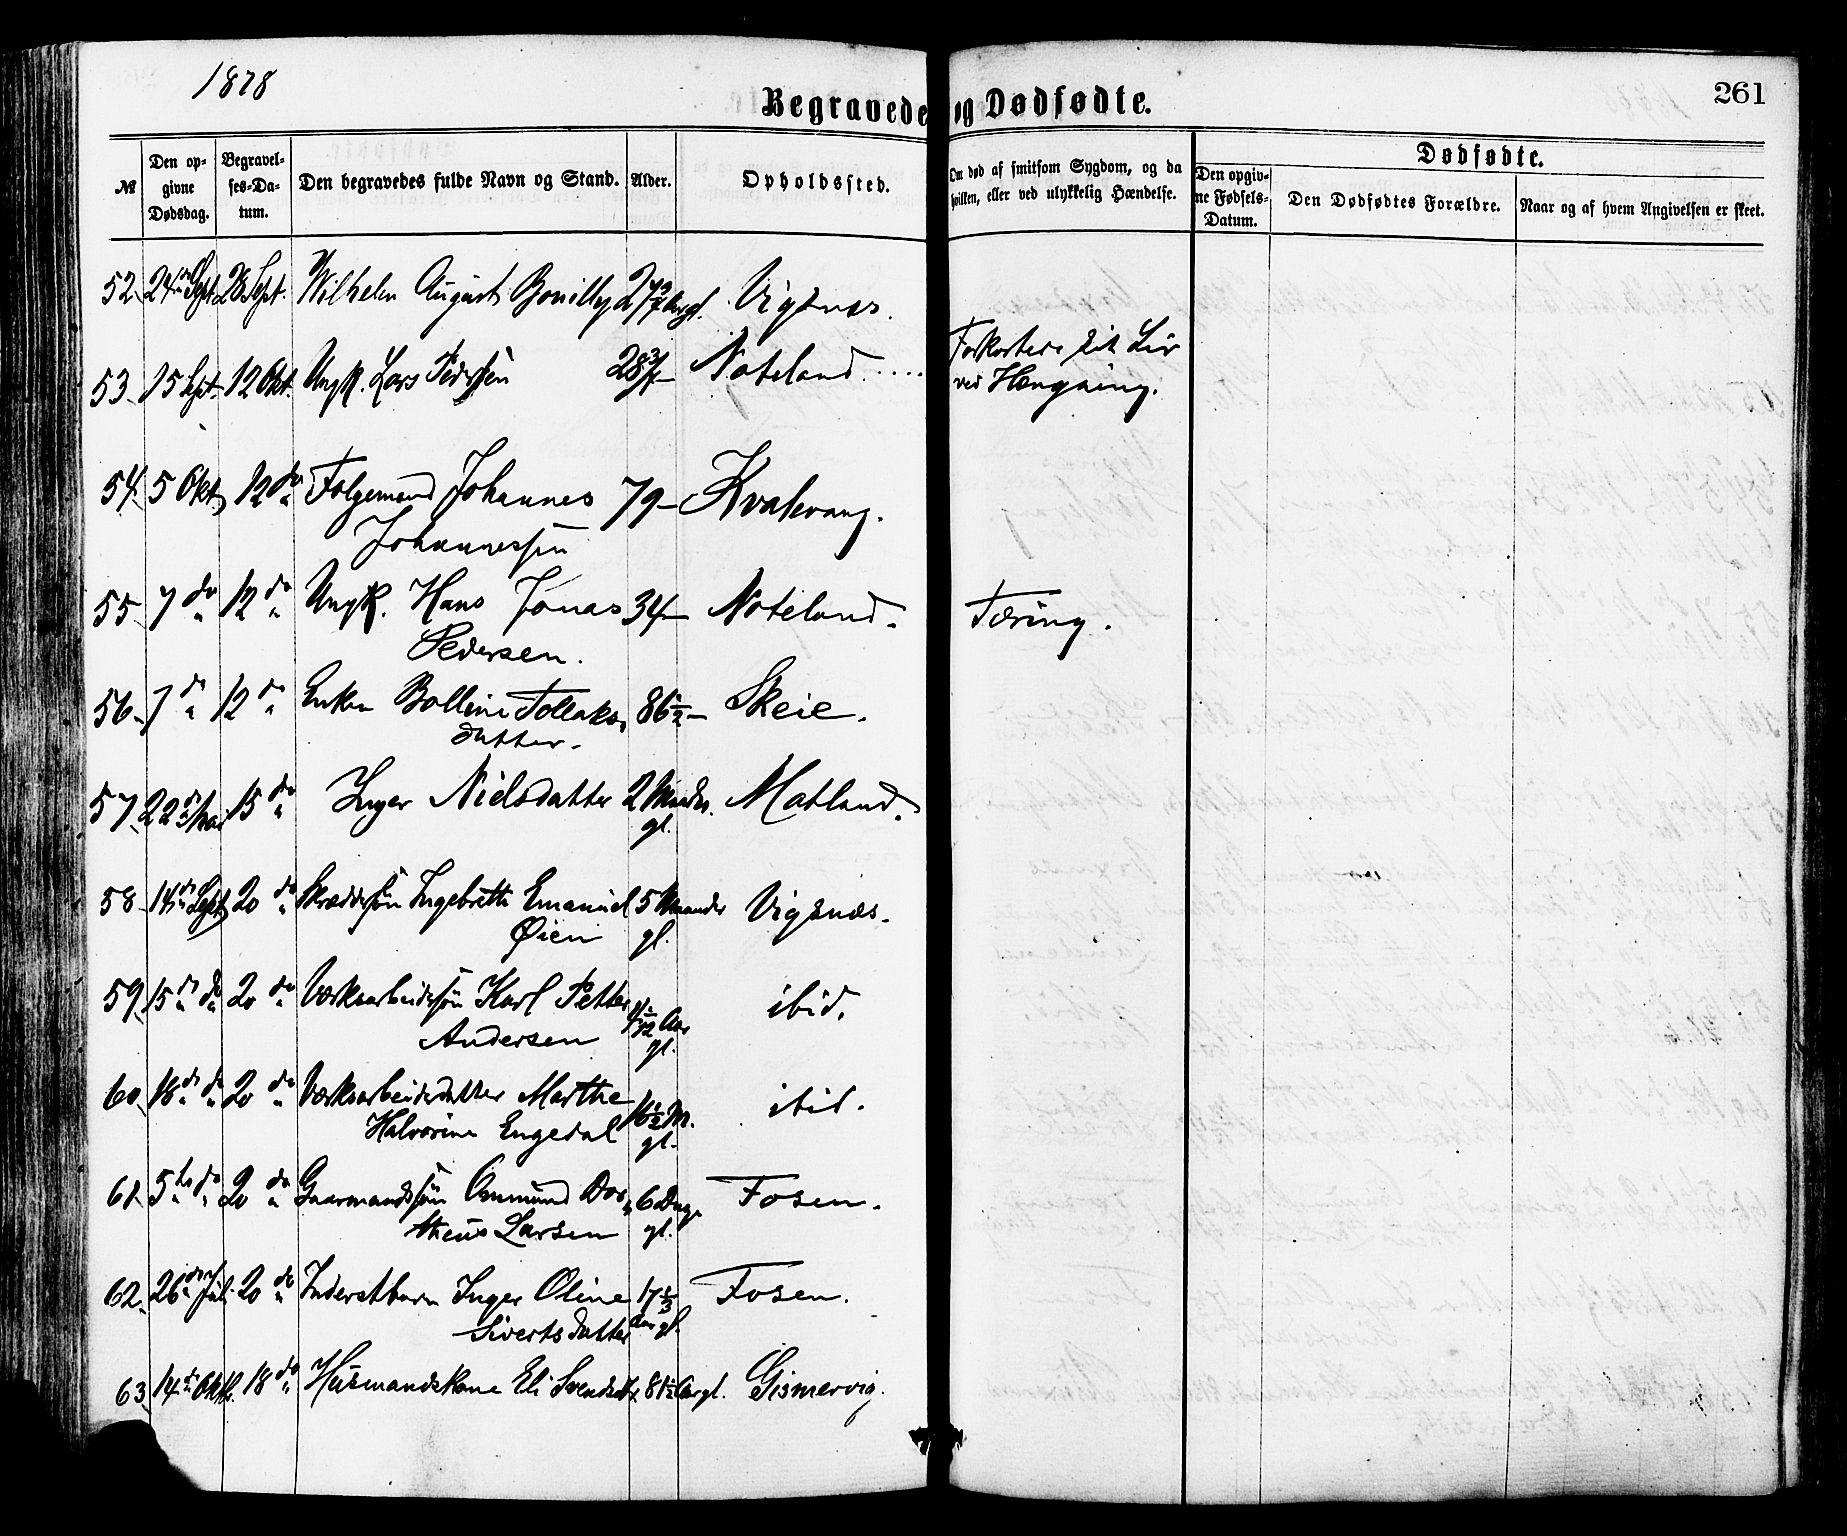 1878
261
Begravede og Dødfødte.
№
Den opgivne Dødsdag.
Begravelses-Datum.
Den begravedes fulde Navn og Stand.
Alder.
Opholdssted.
Om død af smitsom Sygdom, og da hvilken, eller ved ulykkelig Hændelse.
Dødfødte.
Den opgivne Fødsels-Datum.
Den Dødfødtes Forældre.
Naar og af hvem Angivelsen er skeet.
52. 24de Sept. 28 Sept. Wilhelm August 2 Aar gl. Vigsnæs.
53. 15 Sept. 12 Okt. Ungk. Lars Pedersen 28 3/4 – Noteland..... Forkortede sit Liv
ved Hængning.
54. 5 Okt. 12 do Følgemand Johannes 79 – Kvalevaag.
Johannessen
55. 7 do 12 do Ungk. Hans Jonas 34 – Noteland. Tæring.
Pedersen.
56. 7 do 12 do Enken Bolline Tollaks- 86 1/2 – Skeie.
datter.
57. 22de Mai 15 do Inger Nielsdatter 2 Maaneder. Matland.
gl.
58. 14de Sept. 20 do Skræddersøn Ingebreth Emanuel 5 Maaneder Vigsnæs.
Øien gl.
59. 15de do 20 do Værksarbeidersøn Karl Petter Aar ibid.
Andersen gl.
60. 18de do 20 do Værksarbeiderdatter Marthe 16 1/2 M. ibid.
Halvorine Engedal gl.
61. 5te do 20 do Gaarmandssøn Ommund Do- 6 Dage Fosen.
theus Larsen gl.
62. 26de Juli 20 do Inderstbarn Inger Oline 17 Fosen.
Sivertsdatter Dage gl.
63. 14de Oktbr. 18 do Husmandskone Eli Svendsdtr. 81 1/2 Aar gl. Gismervig.